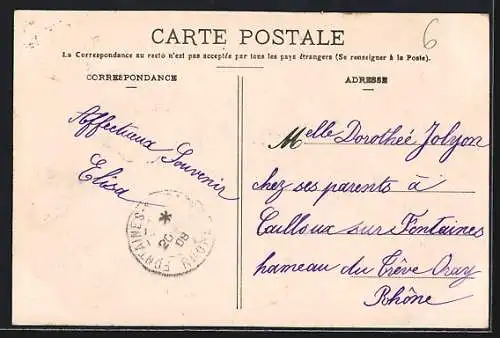 6
CARTE POSTALE
La Correspondance au resto n'est pas acceptée par tous les pays étrangers (Se renseigner à la Poste).
CORRESPONDANCE
ADRESSE
Affectueux Souvenir
Elisa
FONTAINES-S
20
09
RHÔNE
Melle Dorothée Jolyon
chez ses parents à
Cailloux sur Fontaines
hameau du Trêve Oray
Rhône